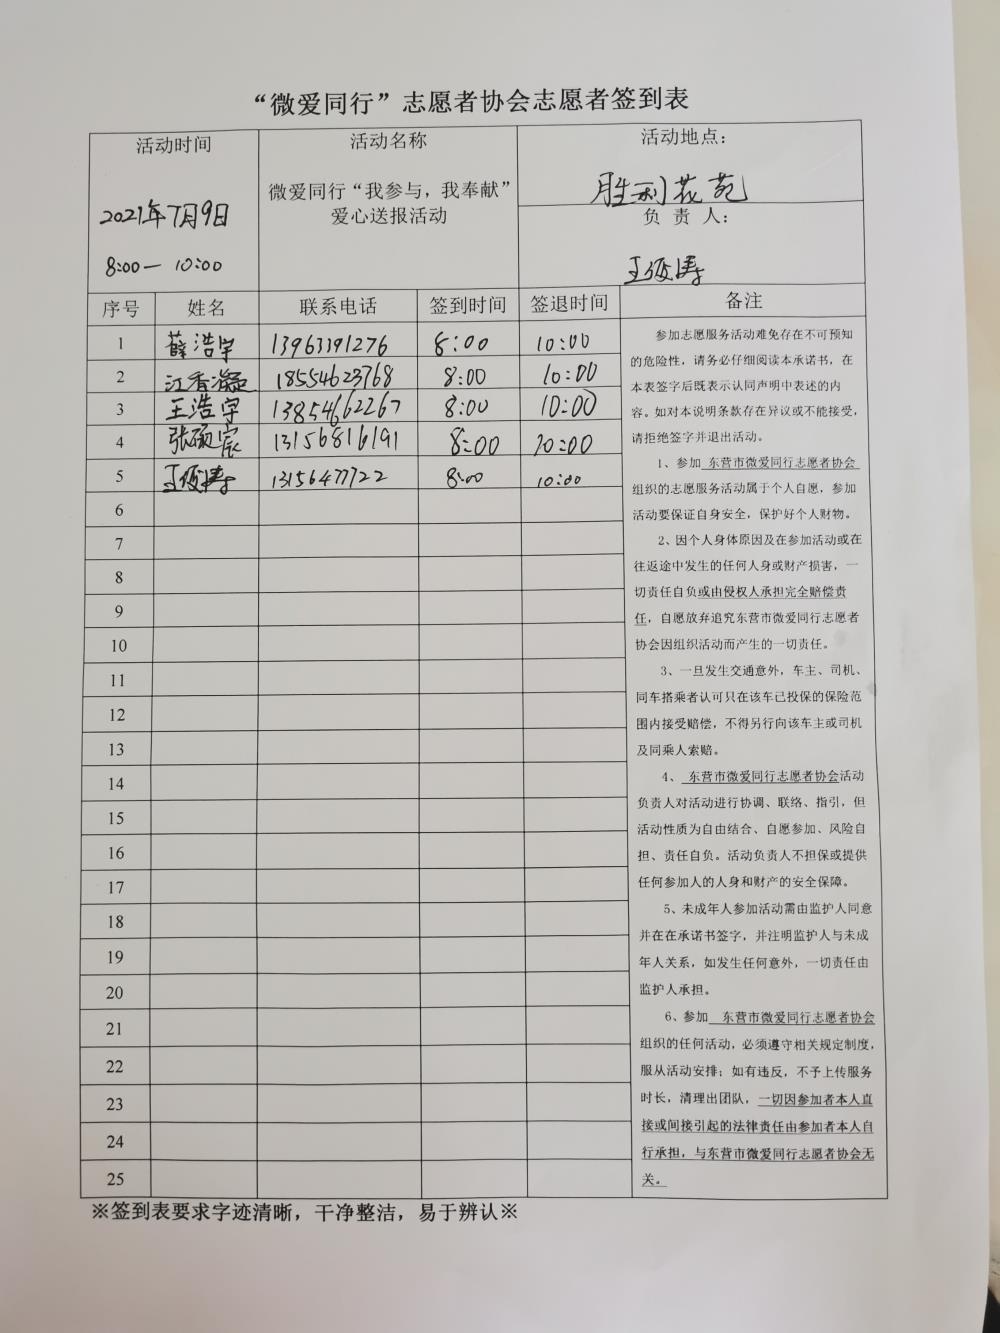 “微爱同行”志愿者协会志愿者签到表
活动时间
2021年7月9日
8:00— 10:00
活动名称
微爱同行“我参与，我奉献”
爱心送报活动
活动地点：
胜利花苑
负 责 人：
王
序号 姓名 联系电话 签到时间 签退时间 备注
1 薛浩宇 13963391276 8:00 10:00
2 江香 18554623768 8:00 10:00
3 王浩宇 13854662267 8:00 10:00
4 张硕宸 13156816191 8:00 10:00
5 王 13156477722 8:00 10:00
6
7
8
9
10
11
12
13
14
15
16
17
18
19
20
21
22
23
24
25
参加志愿服务活动难免存在不可预知
的危险性，请务必仔细阅读本承诺书，在
本表签字后既表示认同声明中表述的内
容。如对本说明条款存在异议或不能接受，
请拒绝签字并退出活动。
1、参加 东营市微爱同行志愿者协会
组织的志愿服务活动属于个人自愿，参加
活动要保证自身安全，保护好个人财物。
2、因个人身体原因及在参加活动或在
往返途中发生的任何人身或财产损害，一
切责任自负或由侵权人承担完全赔偿责
任，自愿放弃追究东营市微爱同行志愿者
协会因组织活动而产生的一切责任。
3、一旦发生交通意外，车主、司机、
同车搭乘者认可只在该车已投保的保险范
围内接受赔偿，不得另行向该车主或司机
及同乘人索赔。
4、 东营市微爱同行志愿者协会活动
负责人对活动进行协调、联络、指引，但
活动性质为自由结合、自愿参加、风险自
担、责任自负。活动负责人不担保或提供
任何参加人的人身和财产的安全保障。
5、未成年人参加活动需由监护人同意
并在在承诺书签字，并注明监护人与未成
年人关系，如发生任何意外，一切责任由
监护人承担。
6、参加 东营市微爱同行志愿者协会
组织的任何活动，必须遵守相关规定制度，
服从活动安排；如有违反，不予上传服务
时长，清理出团队，一切因参加者本人直
接或间接引起的法律责任由参加者本人自
行承担，与东营市微爱同行志愿者协会无
关。
※签到表要求字迹清晰，干净整洁，易于辨认※